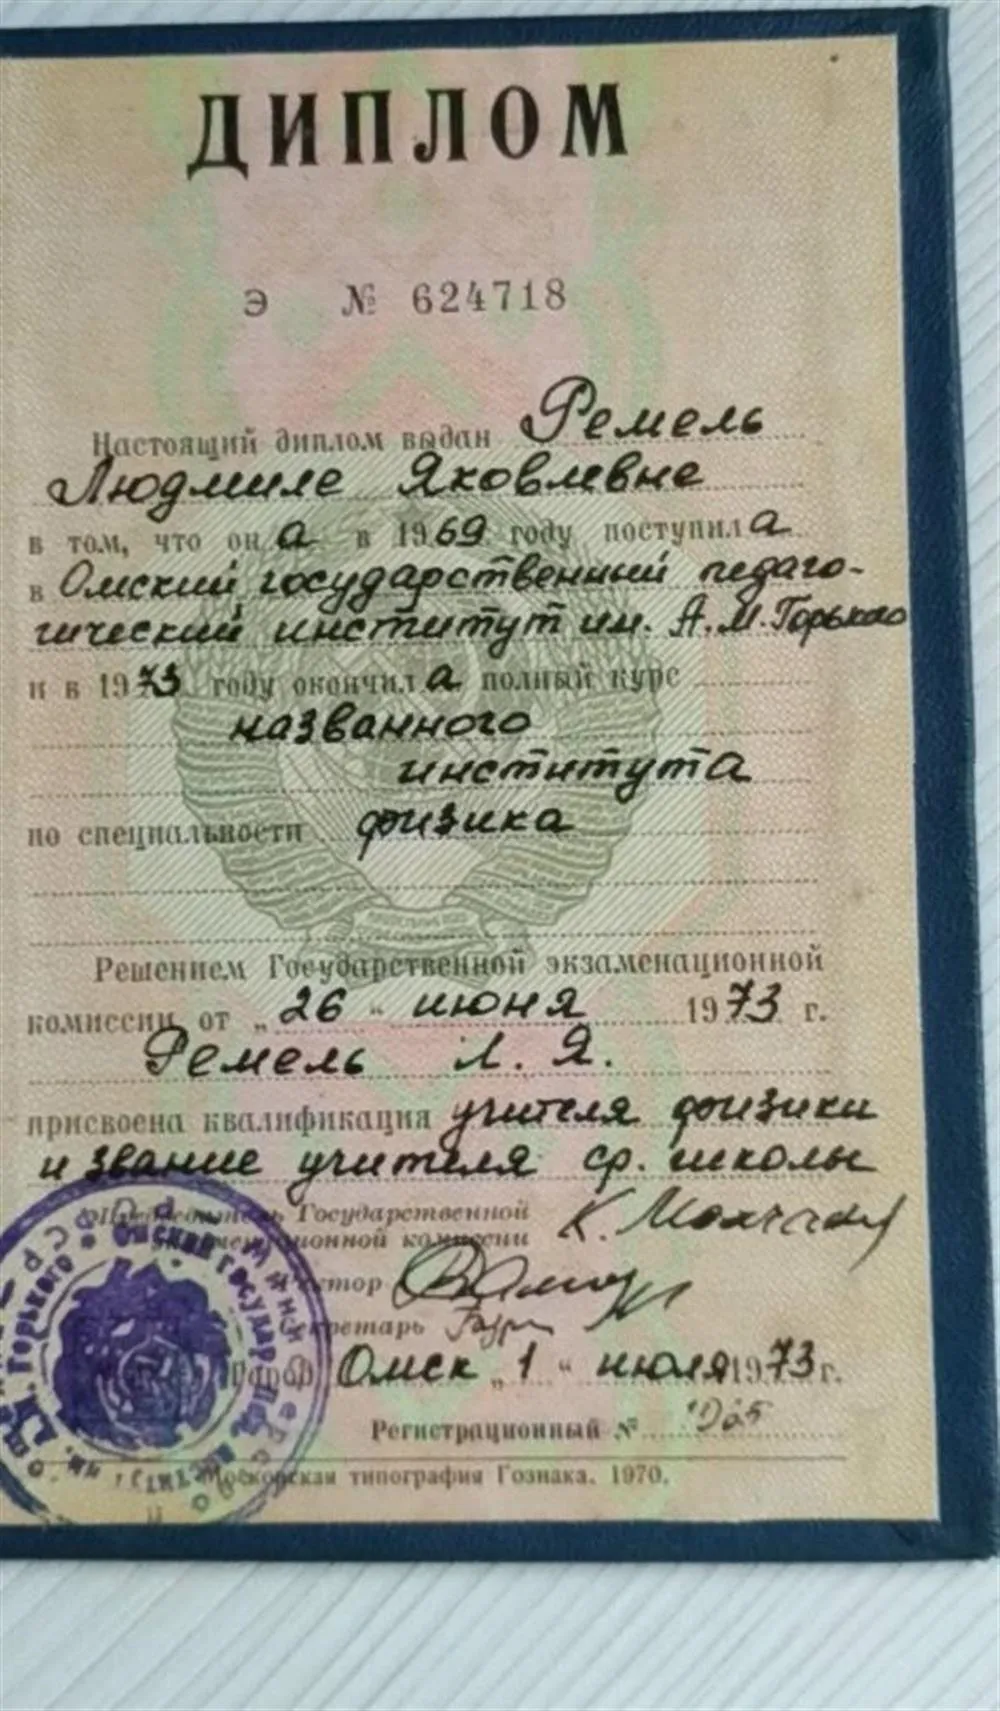 ДИПЛОМ
Э № 624718
Настоящий диплом выдан Ремель
Людмиле Яковлевне
в том, что она в 1969 году поступила
в Омский государственный педаго-
гический институт им. А.М.Горького
и в 1973 году окончила полный курс
названного
института
по специальности физика
Решением Государственной экзаменационной
комиссии от „26" июня 1973 г.
Ремель Л. Я.
присвоена квалификация учителя физики
и звание учителя ср. школы
Председатель Государственной
экзаменационной комиссии
Ректор
Секретарь
Город Омск „1" июля 1973 г.
Регистрационный №
Московская типография Гознака. 1970.